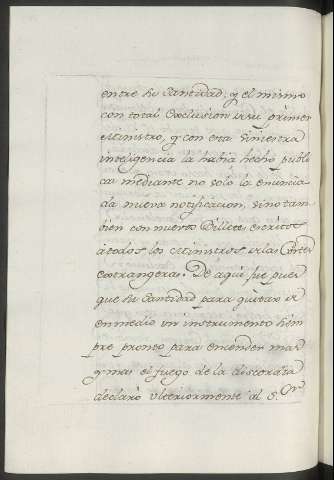 entre su Santidad, y el mismo
con total Exclusion de su primer
Ministro, y con esta siniestra
inteligencia la havia hecho publi
ca, mediante no solo la enuncia
da nueva notificacion, sino tam
bien con nuevos Villetes escritos
a todos los Ministros de las Cortes
extrangeras. De aqui fue pues
que su Santidad para quitar de
enmedio un instrumento siem
pre pronto para encender mas
y mas el fuego de la discordia
declaró ulteriormente al S.or